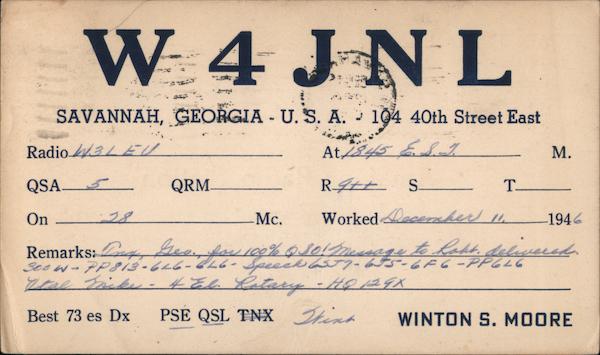 W4JNL
SAVANNAH, GEORGIA - U. S. A. - 104 40th Street East
Radio W3LEU At 1845 E.S.T. M.
QSA 5 QRM R 9++ S T
On 28 Mc. Worked December 11, 1946
Remarks: Tnx, Geo. for 100% QSO! Message to Robt. delivered.
300W - PP813 - 6L6 - 6L6 - Speech 6SJ7 - 6J5 - 6F6 - PP6L6
Mike - 4 El. Rotary - HQ129X
Best 73 es Dx PSE QSL TNX Wink WINTON S. MOORE